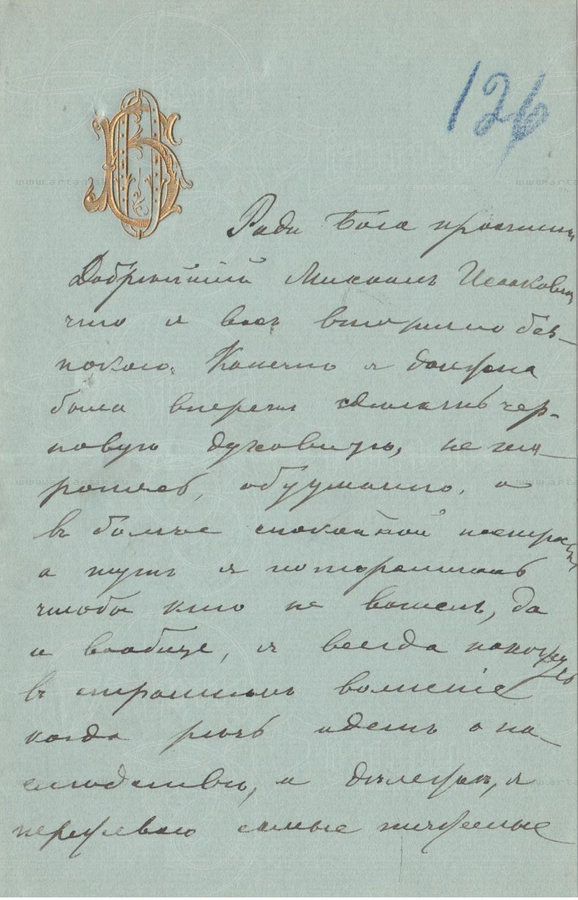 126
Ради Бога простите
Добрѣйшій Михаилъ Исааковичъ
что я васъ вторично без-
покою. Конечно я должна
была впередъ сдѣлать чер-
новую духовную, не то-
ропясь, обдуманно, и
въ болѣе спокойной
а тутъ я поторопилась
чтобы кто не вошелъ, да
и вообще, я всегда нахожусь
въ страшномъ волненіе
когда рѣчь идетъ о на-
слѣдствѣ, и дѣлежѣ, я
переживаю самые тяжелые